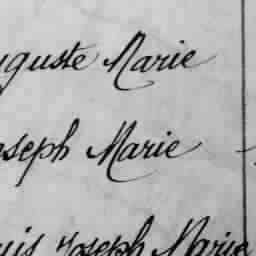 uguste Marie
oseph Marie
uis Joseph Marie